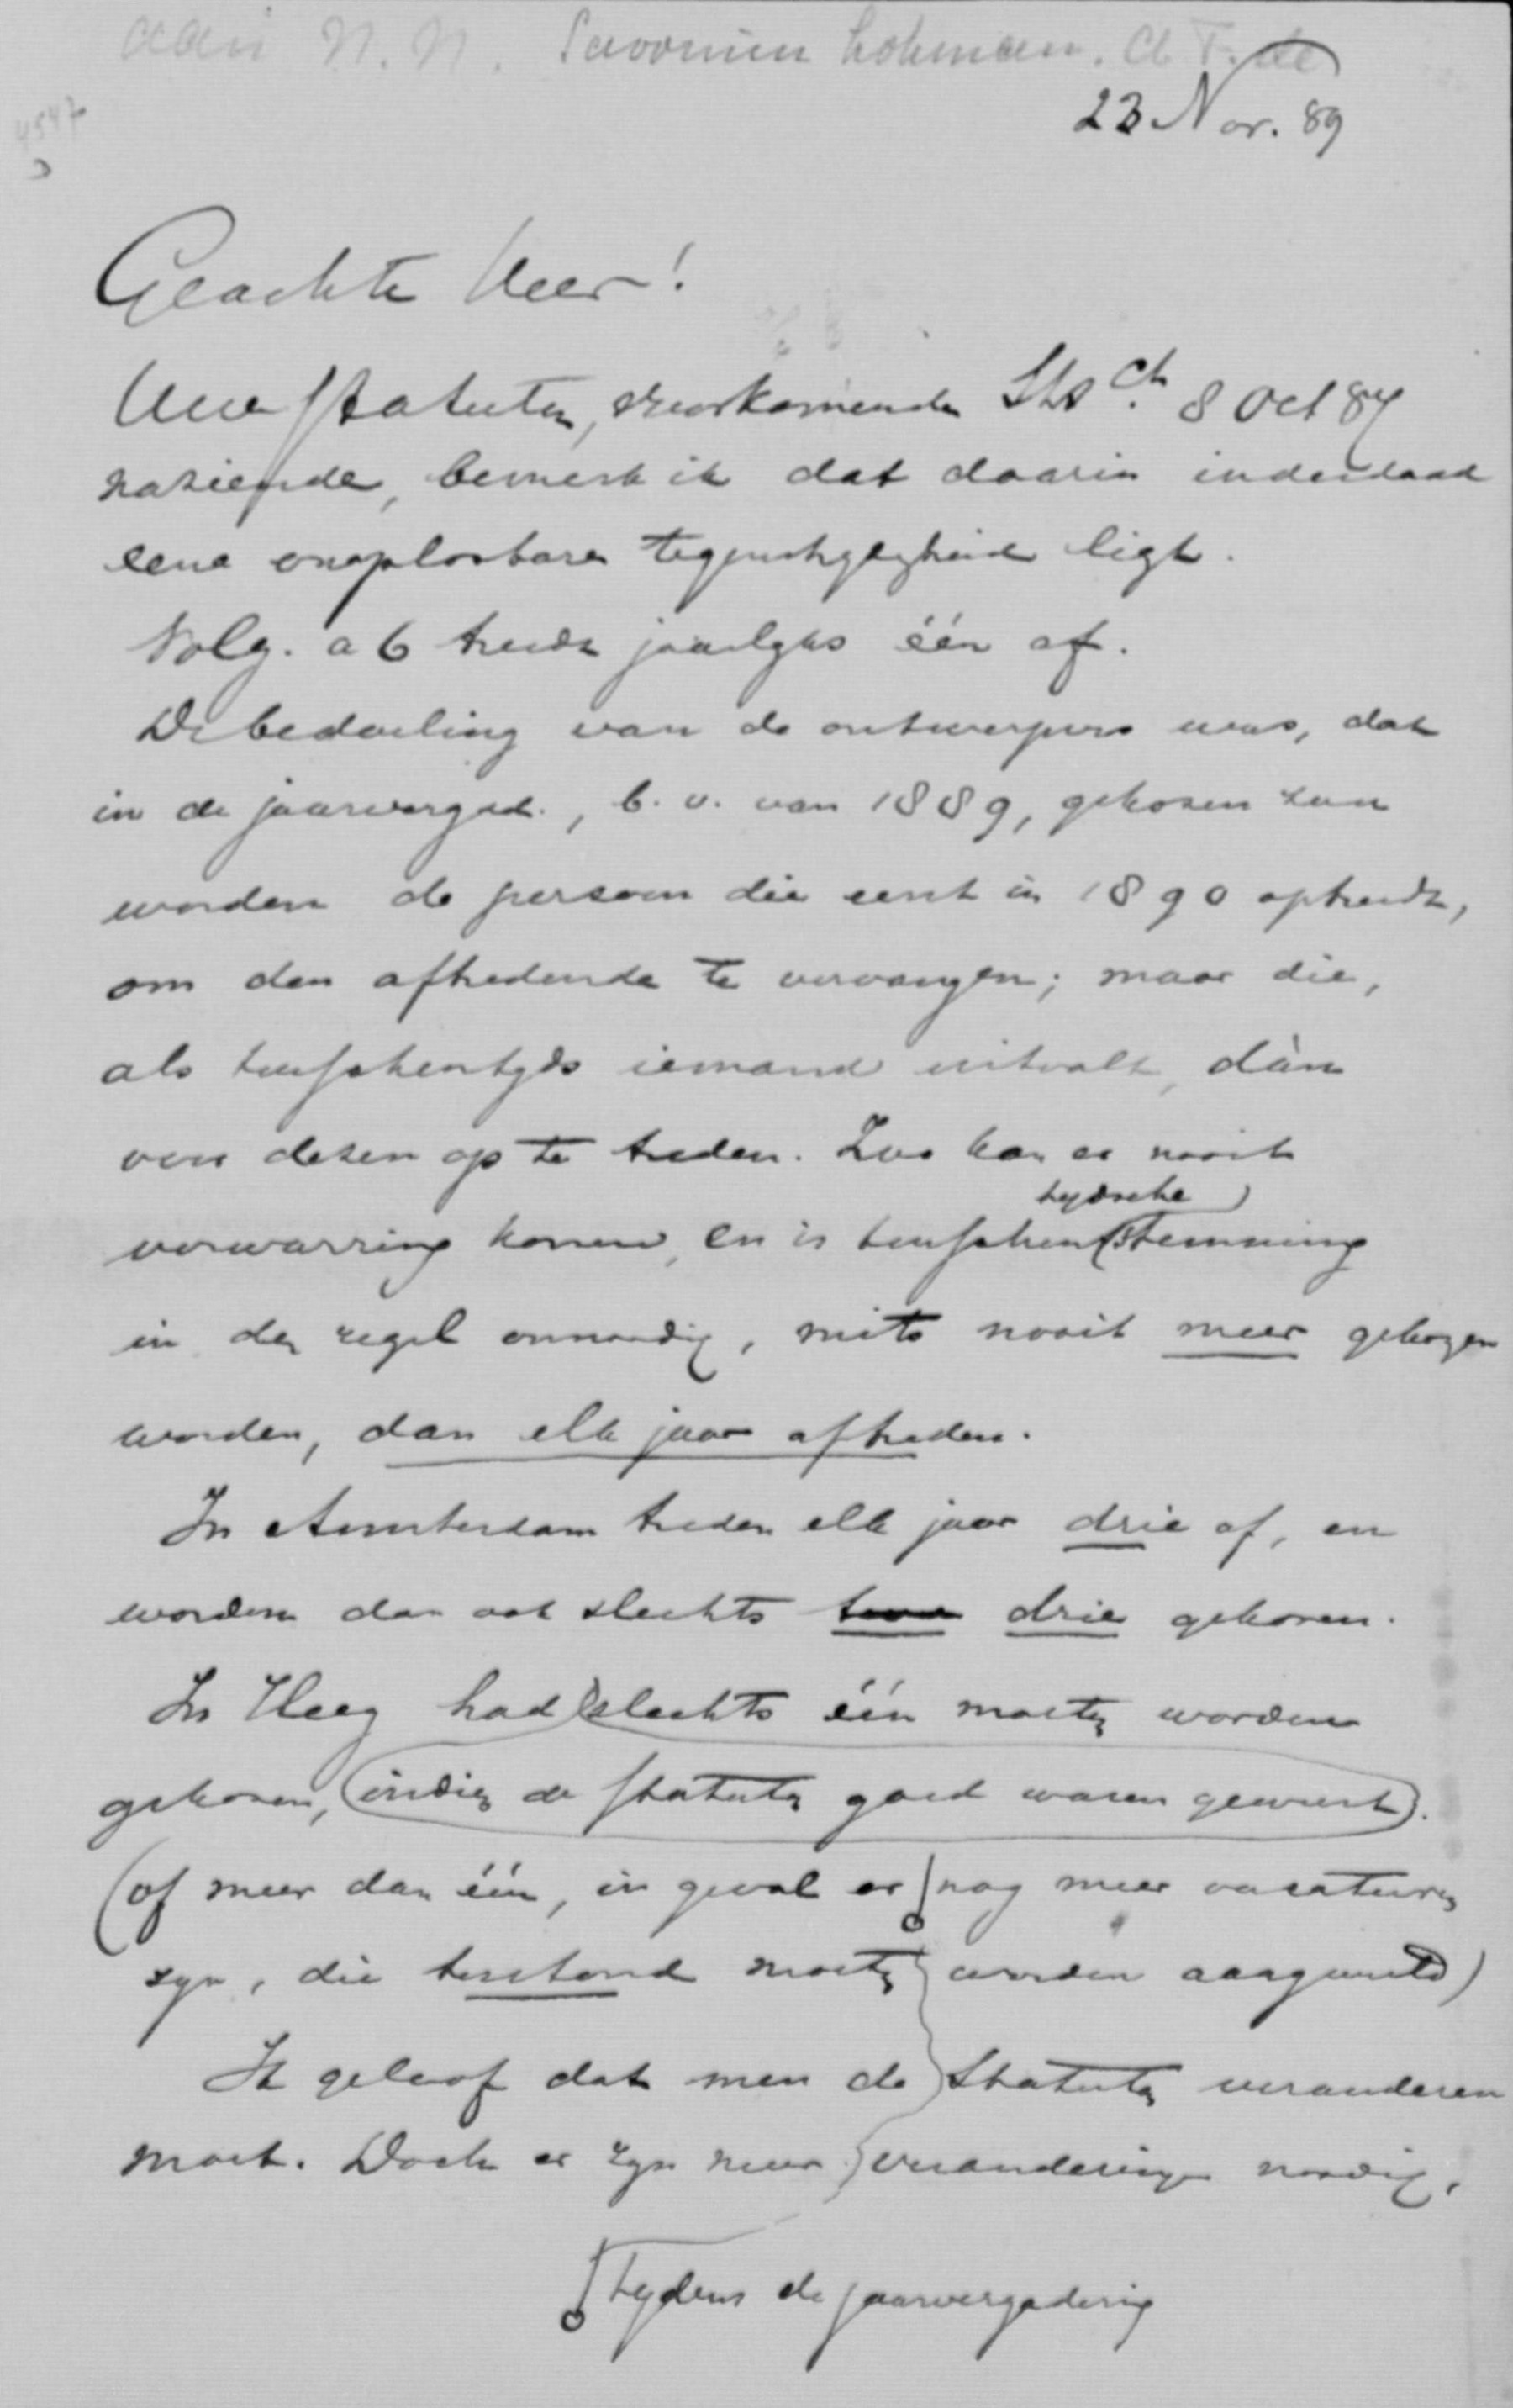 aan N.N. Savornin Lohman. A F. de
4547
23 Nov. 89
Geachte Heer!
Uwe statuten, voorkomende Stsct. 8 Oct 87
naziende, bemerk ik dat daarin inderdaad
eene onoplosbare tegenstrydigheid ligt.
Volg. a 6 treedt jaarlyks één af.
De bedoeling van de ontwerpers was, dat
in de jaarvergad., b.v. van 1889, gekozen zou
worden de persoon die eerst in 1890 optreedt,
om den aftredende te vervangen; maar die,
als tusschentyds iemand uitvalt, dàn
voor dezen op te treden. Zoo kan er nooit
verwarring komen, en is tusschentydsche stemming
in den regel onnoodig, mits nooit meer gekozen
worden, dan elk jaar aftreden.
In Amsterdam treden elk jaar drie af, en
worden dan ook slechts twee drie gekozen.
In Heeg had slechts één moeten worden
gekozen, indien de statuten goed waren geweest.
(of meer dan één, in geval er nog meer vacatures
zyn, die terstond moeten worden aangevuld)
Ik geloof dat men de Statuten veranderen
moet. Doch er zyn meer veranderingen noodig.
tydens de jaarvergadering